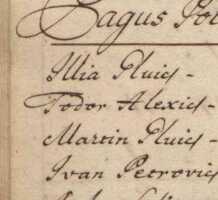 Pagus Po
Illia Pluics -
Todor Alexics -
Martin Pluics -
Ivan Petrovics